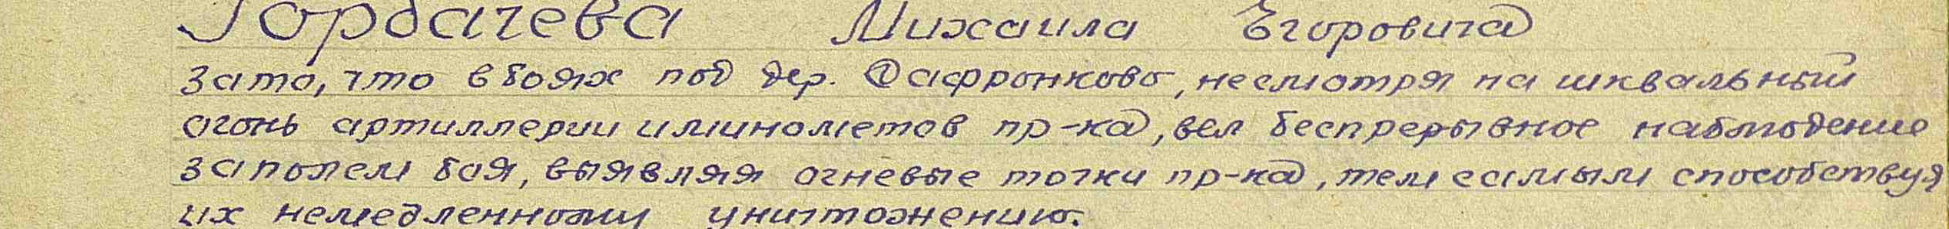 Горбачева Михаила Егоровича
за то, что в боях под дер. Сафронково, несмотря на шквальный
огонь артиллерии и минометов пр-ка, вел беспрерывное наблюдение
за полем боя, выявляя огневые точки пр-ка, тем самым способствуя
их немедленному уничтожению.